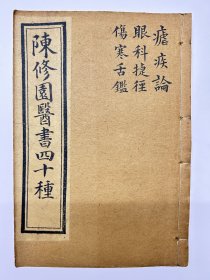 瘧疾論
眼科捷徑
傷寒舌鑑
陳修園醫書四十種